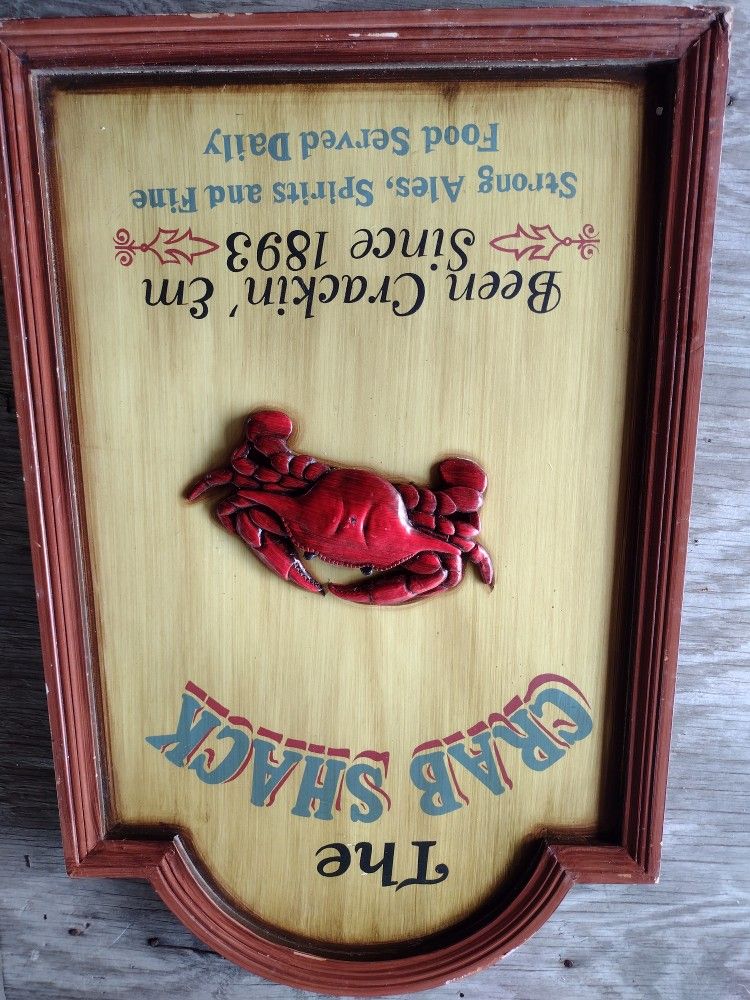 The
CRAB SHACK
Been Crackin' Em
Since 1893
Strong Ales, Spirits and Fine
Food Served Daily